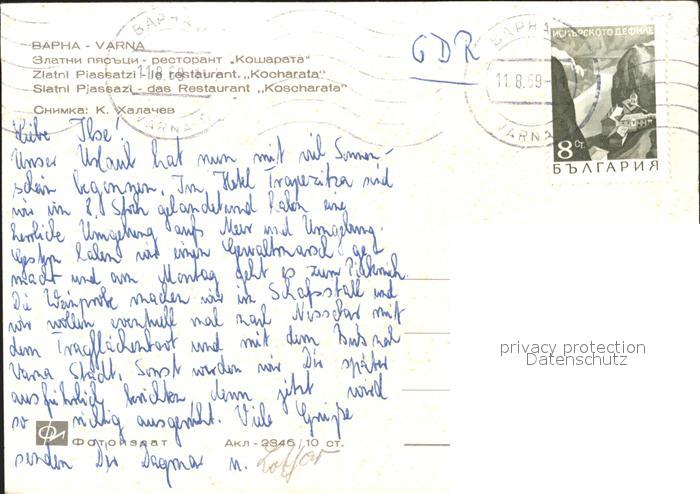 ВАРНА - VARNA
Златни пясъци - ресторант „Кошарата"
Zlatni Piassatzi - le restaurant „Kocharata"
Slatni Pjassazi - das Restaurant „Koscharata"
Снимка: К. Халачев
GDR
ВАРНА
11.8.69
VARNA
ВАРНА
11.8.69
VARNA
ИСКЪРСКОТО ДЕФИЛЕ
8 СТ.
БЪЛГАРИЯ
Liebe Ilse!
Unser Urlaub hat nun mit viel Sonnen-
schein begonnen. Im Hotel Trapezitza sind
wir im 8. Stock gelandet und haben eine
herrliche Umgebung aufs Meer und Umgebung.
Gestern haben wir einen Gewaltmarsch ge-
macht und am Montag geht es zum Picknick.
Die Weinprobe machen wir im Schafsstall und
wir wollen eventuell mal nach Nessebar mit
dem Tragflächenboot und mit dem Bus nach
Varna Stadt. Sonst werden wir Dir später
ausführlich berichten, denn jetzt wird
so richtig ausgeruht. Viele Grüße
senden Dir Dagmar u.
Фотоиздат Акл-2946/10 ст.
privacy protection
Datenschutz